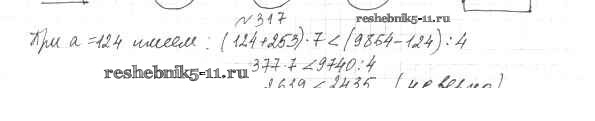 №317
reshebnik5-11.ru
При a=124 имеем: (124+253)·7<(9864-124):4
377·7<9740:4
reshebnik5-11.ru
2639<2435 (неверно)